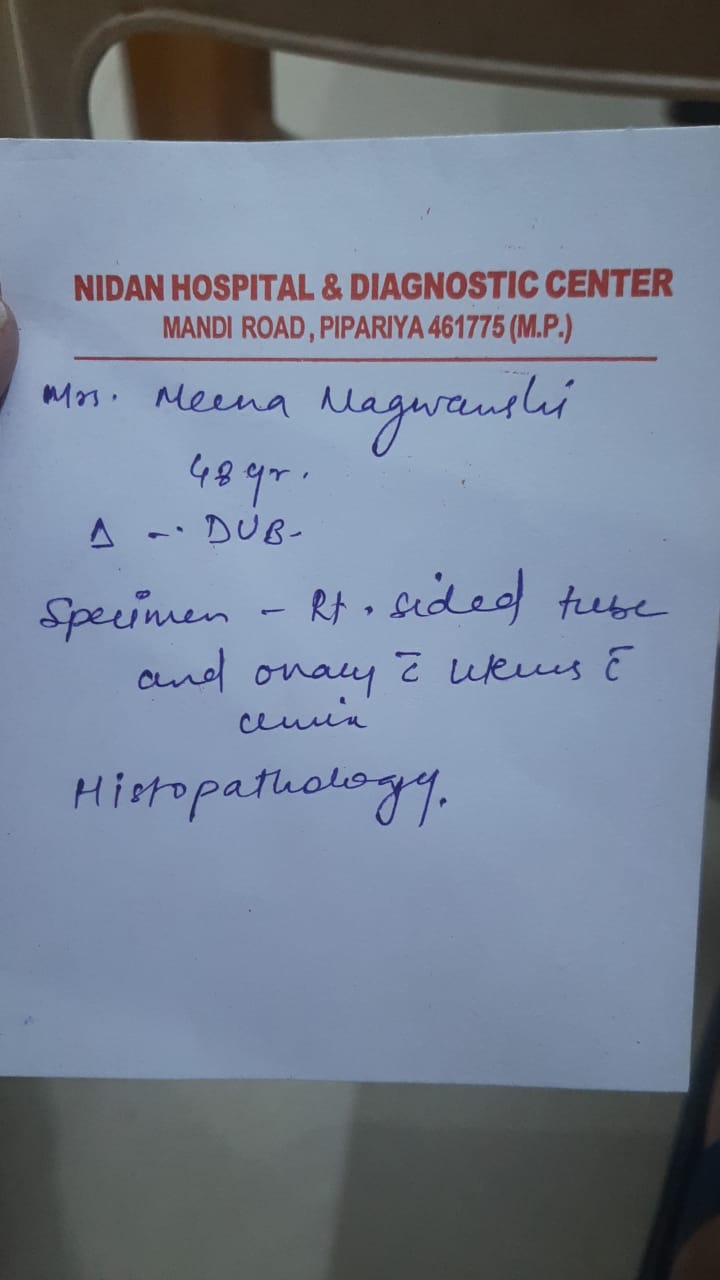 NIDAN HOSPITAL & DIAGNOSTIC CENTER
MANDI ROAD, PIPARIYA 461775 (M.P.)
Mrs. Meena Nagwanshi
48 yr.
Δ -. DUB-
Specimen - Rt. sided tube
and ovary c̄ uterus c̄
cervix
Histopathology.